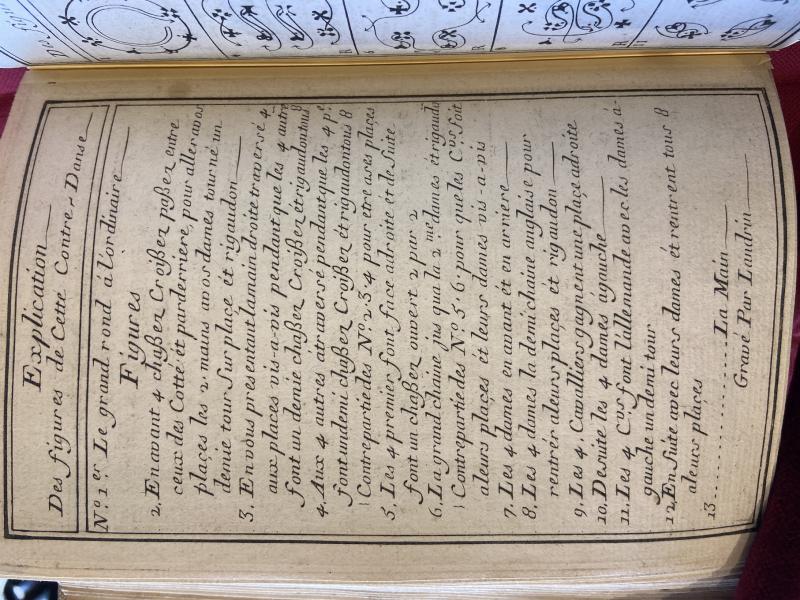 Explication
Des figures de Cette Contre-Danse
N.º 1.er Le grand rond á l'ordinaire
Figures
2. En avant 4 chaßez Croißez paßez entre
ceux des Cotté et parderriere, pour aller a vos
places les 2 mains a vos dames tourné un
demie tour Sur place et rigaudon
3. En vous presentant la main droite traversé 4
aux places vis-a-vis pendant que les 4 autre
font un demie chaßez Croißez et rigaudon tous 8
4. Aux 4 autres a traversé pendant que les 4 p.r
font un demi chaßez Croißez et rigaudon tous 8
Contrepartie des N.º 2. 3. 4 pour etre a ses places
5. Les 4 premier font face adroite et de Suite
font un chaßez ouvert 2 par 2
6. La grand chaine jus qua la 2.me dames et rigauds
Contrepartie des N.º 5. 6. pour que les C.vs soit
a leurs places et leurs dames vis-a-vis
7. Les 4 dames en avant et en arriere
8. Les 4 dames la demi chaine anglaise pour
rentrér a leurs places et rigaudon
9. Les 4. Cavalliers gagnent une place a droite
10. De suite les 4 dames a gauche
11. Les 4 C.vs font l'allemande avec les dames a-
gauche un demi tour
12. En Suite avec leurs dames et rentrent tous 8
a leurs places
13 . . . . . . . . . . . . . . . La Main
Gravé Par Landrin